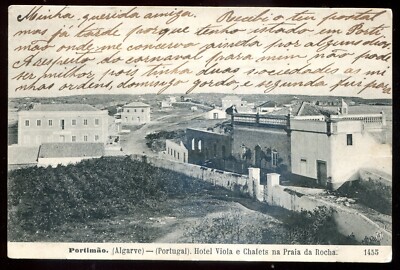 Minha querida amiga. Recebi o teu postal
mas já tarde porque tenho estado em Porti
mão onde me conservo ainda por alguns dias
A respeito do carnaval para mim não pode
ser melhor, pois tinha duas sociedades as mi
nhas ordens, domingo gorda e segunda feira
Portimão. (Algarve) — (Portugal). Hotel Viola e Chalets na Praia da Rocha.
1455